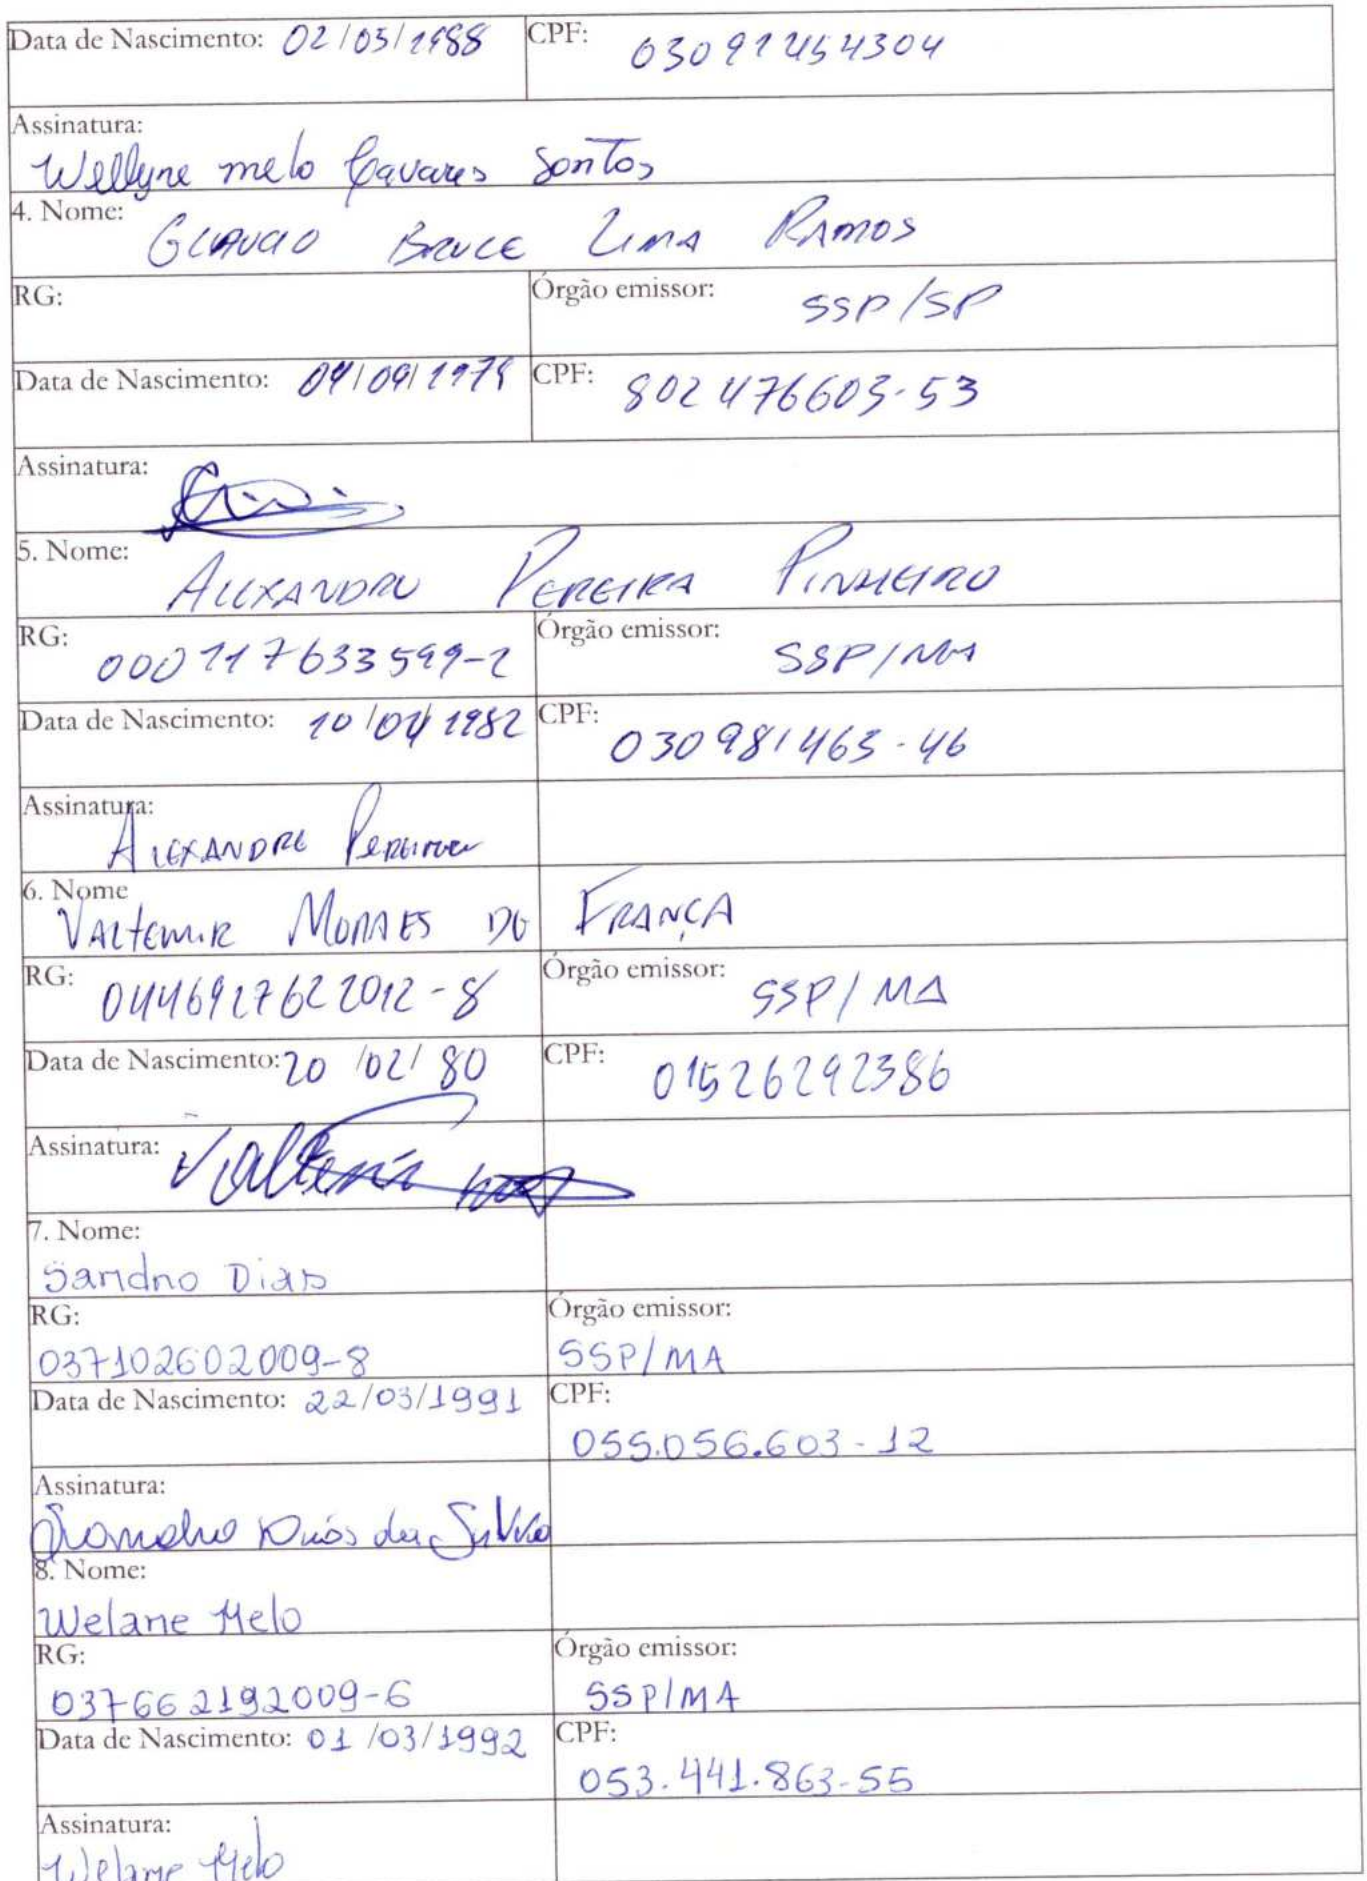 Data de Nascimento: 02/05/1988 CPF: 03091454304
Assinatura:
Wellyne melo Tavares Santos
4. Nome: GLAUCIO BRUCE LIMA RAMOS
RG: Órgão emissor: SSP/SP
Data de Nascimento: 04/09/1979 CPF: 802476603-53
Assinatura:
5. Nome: ALEXANDRE PEREIRA PINHEIRO
RG: 000117633599-2 Órgão emissor: SSP/MA
Data de Nascimento: 10/04/1982 CPF: 030981463-46
Assinatura: ALEXANDRE Pereira
6. Nome VALTEMIR MORAES DE FRANÇA
RG: 0446927622012-8 Órgão emissor: SSP/MA
Data de Nascimento: 20/02/80 CPF: 01526292386
Assinatura: Valtemir
7. Nome:
Sandro Dias
RG: Órgão emissor:
037102602009-8 SSP/MA
Data de Nascimento: 22/03/1991 CPF:
055.056.603-12
Assinatura:
Sandro Dias da Silva
8. Nome:
Welane Melo
RG: Órgão emissor:
037662192009-6 SSP/MA
Data de Nascimento: 01/03/1992 CPF:
053.441.863-55
Assinatura:
Welane Melo